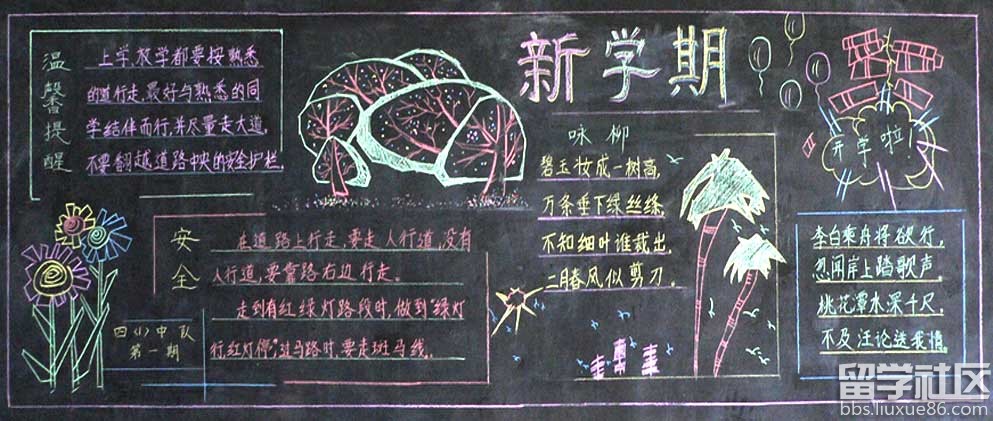 新学期
温馨提醒
上学放学都要按熟悉
的道行走,最好与熟悉的同
学结伴而行,并尽量走大道,
不要翻越道路中央的安全护栏.
安全
在道路上行走,要走人行道,没有
人行道,要靠路右边行走。
走到有红绿灯路段时,做到"绿灯
行,红灯停",过马路时,要走斑马线.
四(1)中队
第一期
咏柳
碧玉妆成一树高,
万条垂下绿丝绦,
不知细叶谁裁出,
二月春风似剪刀.
开学啦!
李白乘舟将欲行,
忽闻岸上踏歌声.
桃花潭水深千尺
不及汪论送我情.
留学社区
bbs.liuxue86.com